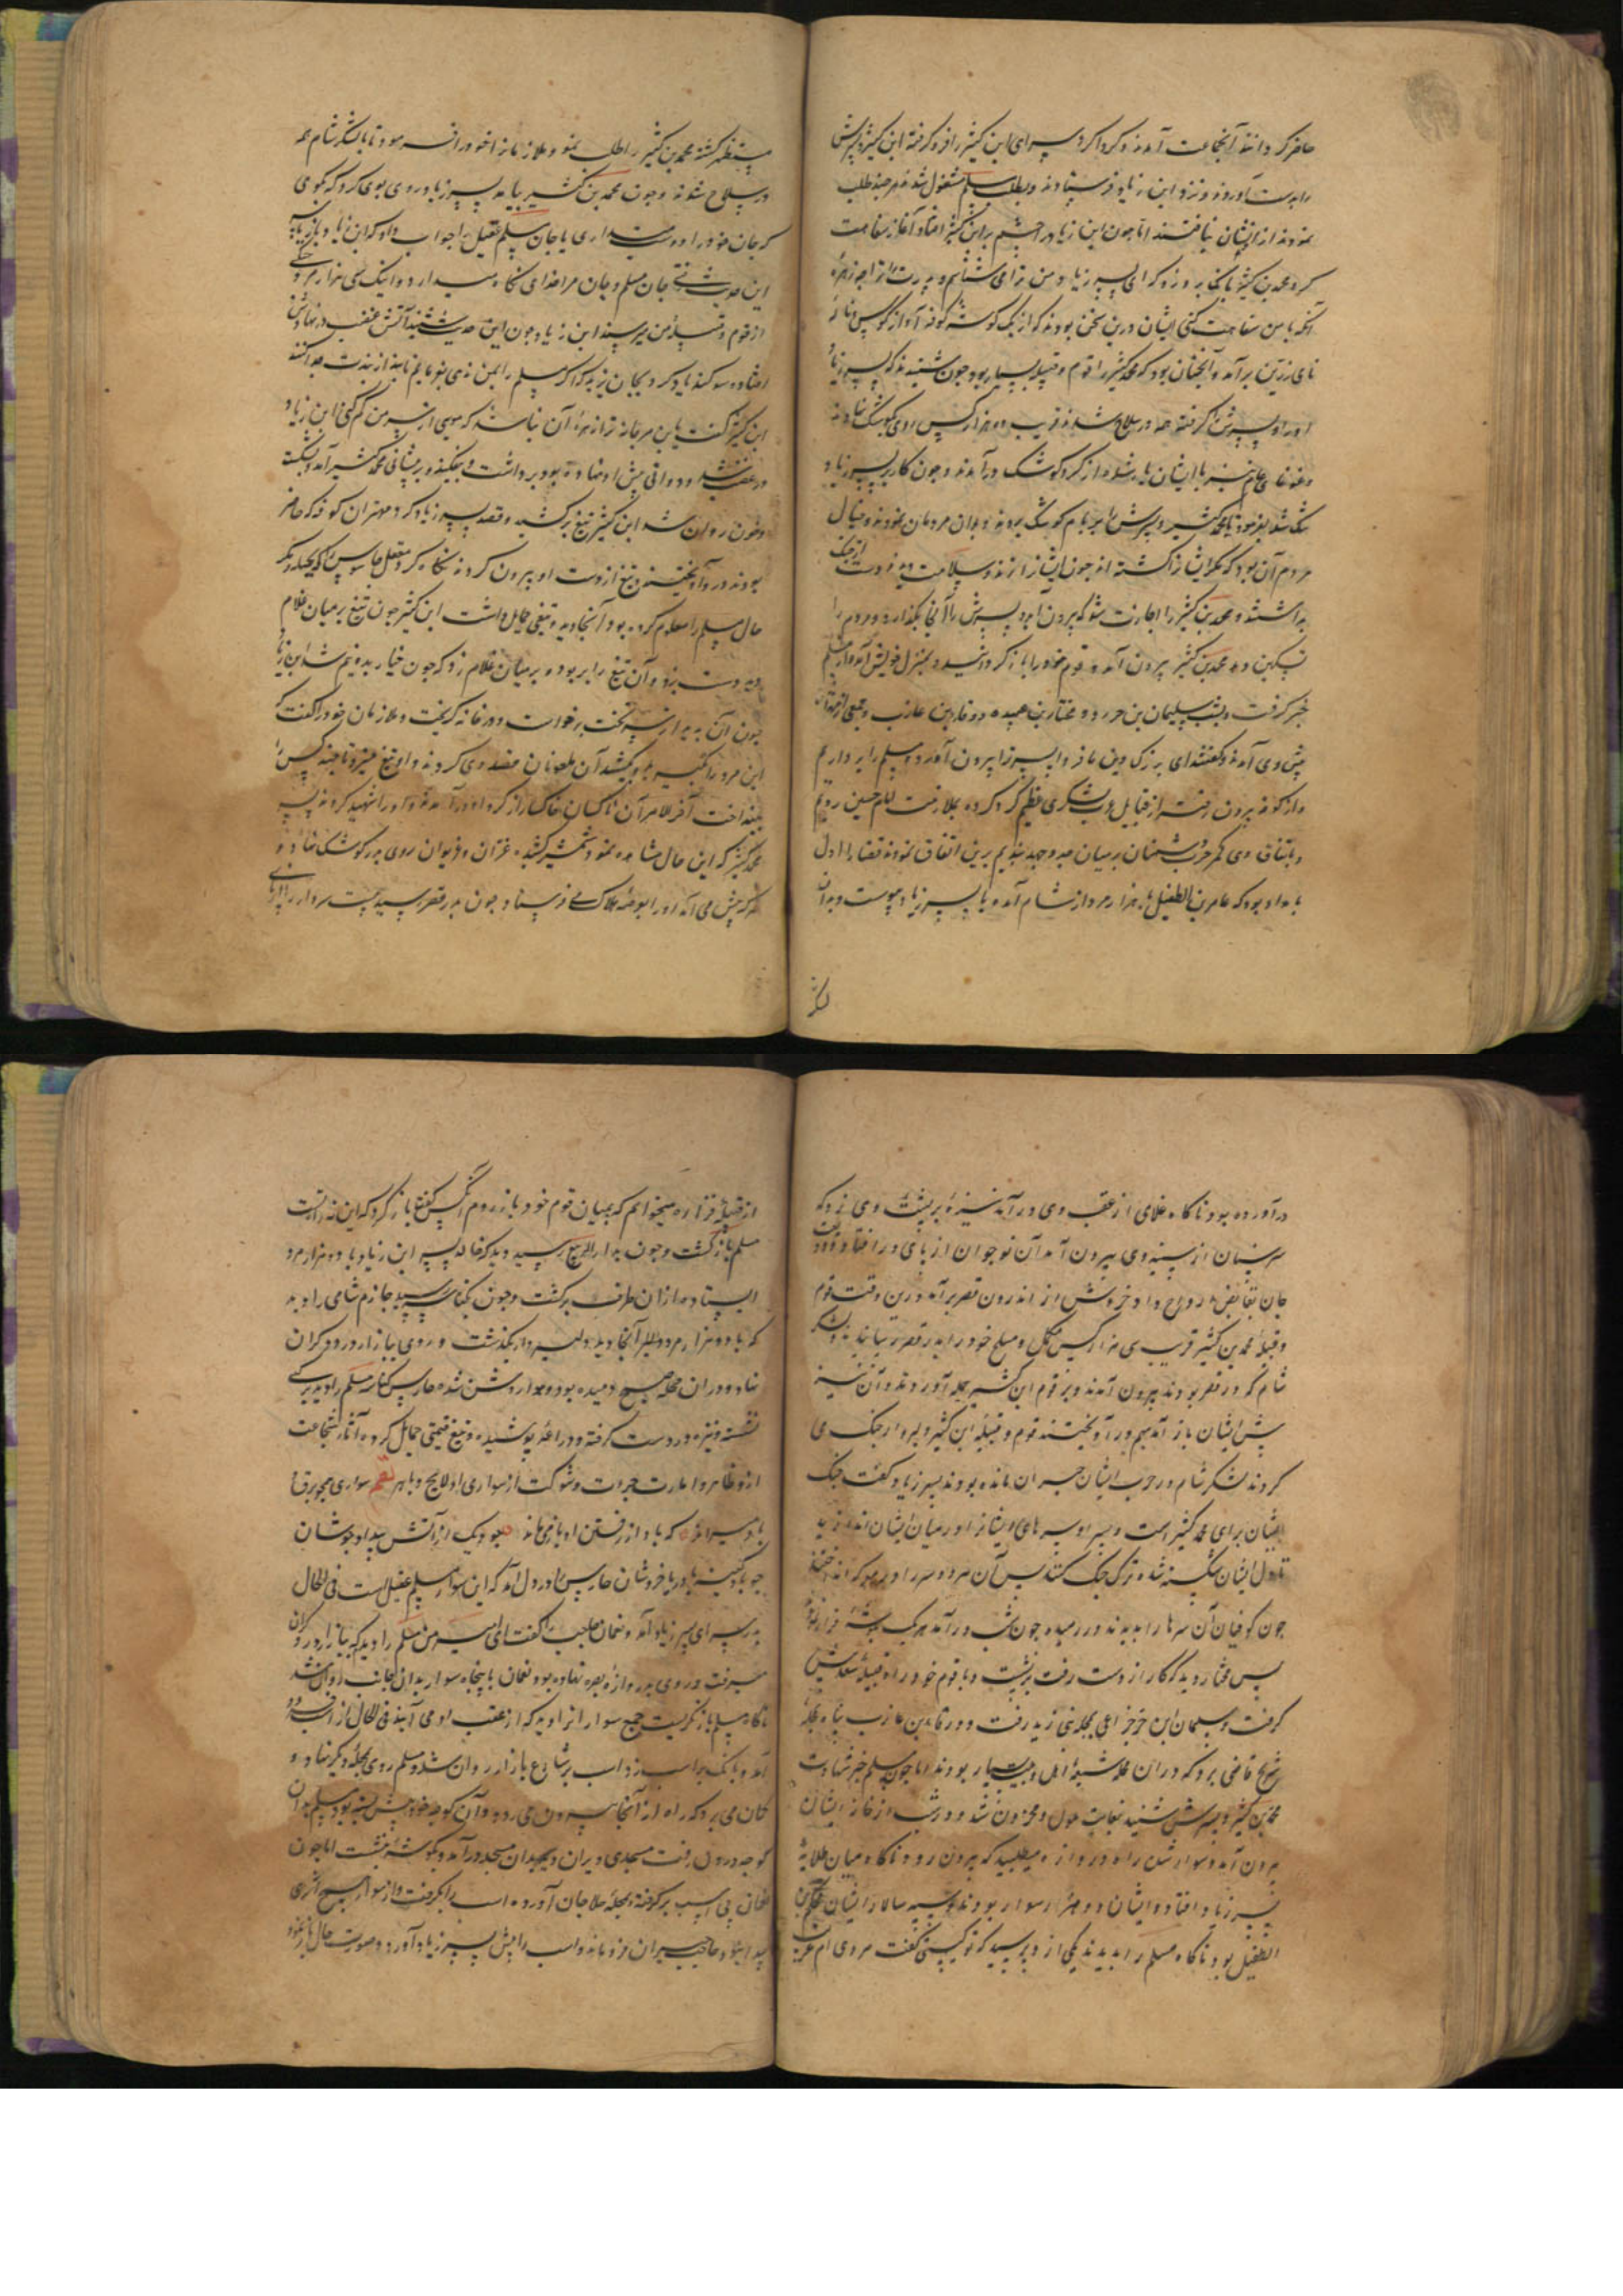 حاضر کردانند آنجماعت آمدند و کرداکرد سرای ابن کثیر را فرو کرفته ابن کثیر و پسرش
را بدست آوردند و نزد ابن زیاد فرستادند و بطلب مسلم مشغول شدند هر چند طلب
نمودند از ایشان نیافتند اما چون ابن زیاد را چشم بر ابن کثیر افتاد آغاز سفاهت
کرد محمد بن کثیر بانک برو زد که ای پسر زیاد من ترا می شناسم و پدرت را ترا چه زهره
آنکه با من سفاهت کنی ایشان درین سخن بودند که از یک کوشه کوفه آواز کوس و نالهٔ
نای رزین برآمد و آنچنان بود که محمد کثیر را قوم و قبیله بسیار بود چون شنیدند که پسر زیاد
او را و پسرش را کرفته همه در سلاح شدند قریب ده هزار کس روی بکوشک نهادند
و غوغای عام نیز با ایشان یار شده از کرد کوشک درآمدند و چون کار بر پسر زیاد
تنک شد بفرمود تا محمد کثیر و پسرش را بر بام کوشک بردند و بدان مردمان نمودند و خیال
مردم آن بود که مکر ایشانرا کشته اند چون ایشانرا زنده و سلامت دیدند دست از جنک
بداشتند و محمد بن کثیر را اجازت شد که بیرون آید و پسرش را آنجا بکذارد و مردم را
تسکین دهد محمد بن کثیر بیرون آمد و قوم خود را باز کردانید و بمنزل خویش آمد و از مسلم
خبر کرفت و بشب سلیمان بن صرد و مختار بن عبیده و رفا بن عازب و جمعی از مهتران
پیش وی آمدند و کفتند ای بزرک دین ما فردا پسر ترا بیرون آور و مسلم را برداریم
و از کوفه بیرون رفته از قبایل عرب لشکری عظیم کرد کرده بملازمت امام حسین رویم
و باتفاق وی کمر حرب دشمنان بر میان جد و جهد بندیم برین اتفاق نمودند قضا را اول
بامداد بود که عامر بن الطفیل با ده هزار مرد از شام آمده با پسر زیاد پیوست و بدان
لشکر
مستظهر کشته محمد بن کثیر را طلب نمود و ملازمانرا خود را فرمود تا با لشکر شام همه
در سلاح شوند و چون محمد بن کثیر بیامد پسر زیاد روی بوی کرد که بکوی
که جان خود را دوست میداری یا جان مسلم عقیل را جواب داد که ای زیاد باز بر سر
این حدیث شدی جان مسلم و جان مرا خدای نکاه میدارد و اینک سی هزار مرد جنکی
از قوم و قبیله من میرسند ابن زیاد چون این حدیث شنید آتش غضب در نهادش
افتاده سوکند یاد کرد بجان یزید که اکر مسلم را بمن ندهی بفرمایم تا سر از بدنت جدا کنند
ابن کثیر کفت یابن مرجانه ترا زهرهٔ آن نباشد که مویی از سر من کم کنی ابن زیاد
در غضب شد و دواتی پیش او نهاده بود برداشت و بیفکند و بر پیشانی محمد کثیر آمد و بشکست
و خون روان شد ابن کثیر تیغ برکشید و قصد پسر زیاد کرد مهتران کوفه که حاضر
بودند در وآویختند و تیغ از دست او بیرون کردند نکاه کرد معقل جاسوس را که بحیله و مکر
حال مسلم را معلوم کرده بود آنجا دید و تیغی حمایل داشت ابن کثیر چون تیغ بر میان غلام
دید دست بزد و آن تیغ را بربود و بر میان غلام زد که چون خیار بدو نیم شد ابن زیاد
چون آن بدید از سر تخت برخواست و در خانه کریخت و ملازمان خود را کفت که
این مرد را بکیرید و بکشید آن ملعونان قصد وی کردند و او تیغ میزد تا چند کس را
بینداخت آخرالامر آن ناکسان خاکسار از کرد او درآمدند و او را شهید کردند پسر
محمد کثیر که این حال مشاهده نمود شمشیر کشیده غران و غریوان روی بدر کوشک نهاد و
هر که پیش می آمد او را بوعدهٔ هلاک می فرستاد چون بدر قصر رسید بیست سردار را از پای
درآورده بود ناکاه غلامی از عقب وی درآمد نیزهٔ بر پشت وی زد که
سر سنان از سینه وی بیرون آمد آن نوجوان از پای در افتاد و
جان بقابض ارواح داد خروش از اندرون قصر برآمد درین وقت قوم
و قبیله محمد بن کثیر قریب سی هزار کس مکمل و مسلح خود را بدر قصر رسانیدند و لشکر
شام که در قصر بودند بیرون آمدند و بر قوم ابن کثیر حمله آوردند و آن نیز
پیش ایشان باز آمدند بهم درآویختند قوم و قبیله ابن کثیر دلیروار جنک می
کردند لشکر شام در حرب ایشان حیران مانده بودند پسر زیاد کفت جنک
ایشان برای محمد کثیر است و پسر او سرهای ایشانرا در میان ایشان اندازید
تا دل ایشان شکسته شده ترک جنک کنند پس آن هر دو سر را در معرکه انداختند
چون کوفیان آن سرها را بدیدند در رمیده چون شب درآمد هر یک بکوشهٔ فرار نمود
پس مختار دید که کار از دست رفت برنشست و با قوم خود راه قبیلهٔ سعد پیش
کرفت و سلیمان ابن صرد خزاعی بمحلهٔ بنی زید رفت و ورقاء بن عازب پناه بمحلهٔ
شریح قاضی برد که در آن محله شیعهٔ اهل بیت بسیار بودند اما چون مسلم خبر شهادت
محمد بن کثیر و پسرش شنید بغایت ملول و محزون شد و در شب از خانهٔ ایشان
بیرون آمد و سوار شد راه دروازه میطلبید که بیرون رود ناکاه میان طلایهٔ
پسر زیاد افتاد و ایشان دو هزار سوار بودند و سپه سالار ایشان محکم بن
الطفیل بود ناکاه مسلم را بدیدند یکی ازو پرسید که تو کیستی کفت مردی ام عرب
از قبیلهٔ فزاره میخواهم که بمیان قوم خود باز روم آن کس کفت باز کرد که این نه راه تست
مسلم بازکشت و چون بدار الربیع رسید دید که خالد پسر ابن زیاد با دو هزار مرد
ایستاده از آن طرف برکشت و چون بکناسه رسید حازم شامی را دید
که با دو هزار مرد آنجا دید دلیروار بکذشت و روی ببازار درودکران
نهاد و در آن محله صبح دمیده بود و هوا روشن شده حارس کناسه مسلم را دید بر اسپی
نشسته و نیزه در دست کرفته و دراعه پوشیده و تیغ قیمتی حمایل کرده آثار شجاعت
ازو ظاهر و امارت جرات و شوکت از سواری او لایح و باهر نظم سواری همچو برق
باد میراند که باد از رفتن او باز می ماند چو دیک از آتش بیداد جوشان
چو باد کینه با دریا خروشان حارس را در دل آمد که این سوار مسلم عقیل است فی الحال
بدر سرای پسر زیاد آمد و نعمان حاجب را کفت ای امیر من مسلم را دیدم که ببازار درودکران
میرفت و روی بدروازهٔ بصره نهاده بود نعمان با پنجاه سوار بدان جانب روان شد
ناکاه مسلم باز نکریست جمع سوارانرا دید که از عقب او می آیند فی الحال از اسب فرود
آمد و بانک بر اسب زد اسب بر شارع بازار روان شد و مسلم روی بمحلهٔ دیکر نهاد و
کمان می برد که راه از آنجا بیرون می رود و آن کوچه خود پیش بسته بود مسلم بدان
کوچه درون رفت مسجدی ویران دید بدان مسجد درآمد و بکوشهٔ بنشست اما چون
نعمان پی اسب برکرفته بمحلهٔ حلاجان آورده اسب را بکرفت و از سوار هیچ اثری
پیدا نبود حاجب حیران فرو ماند و اسب را پیش پسر زیاد آورد و صورت حال باز نمود